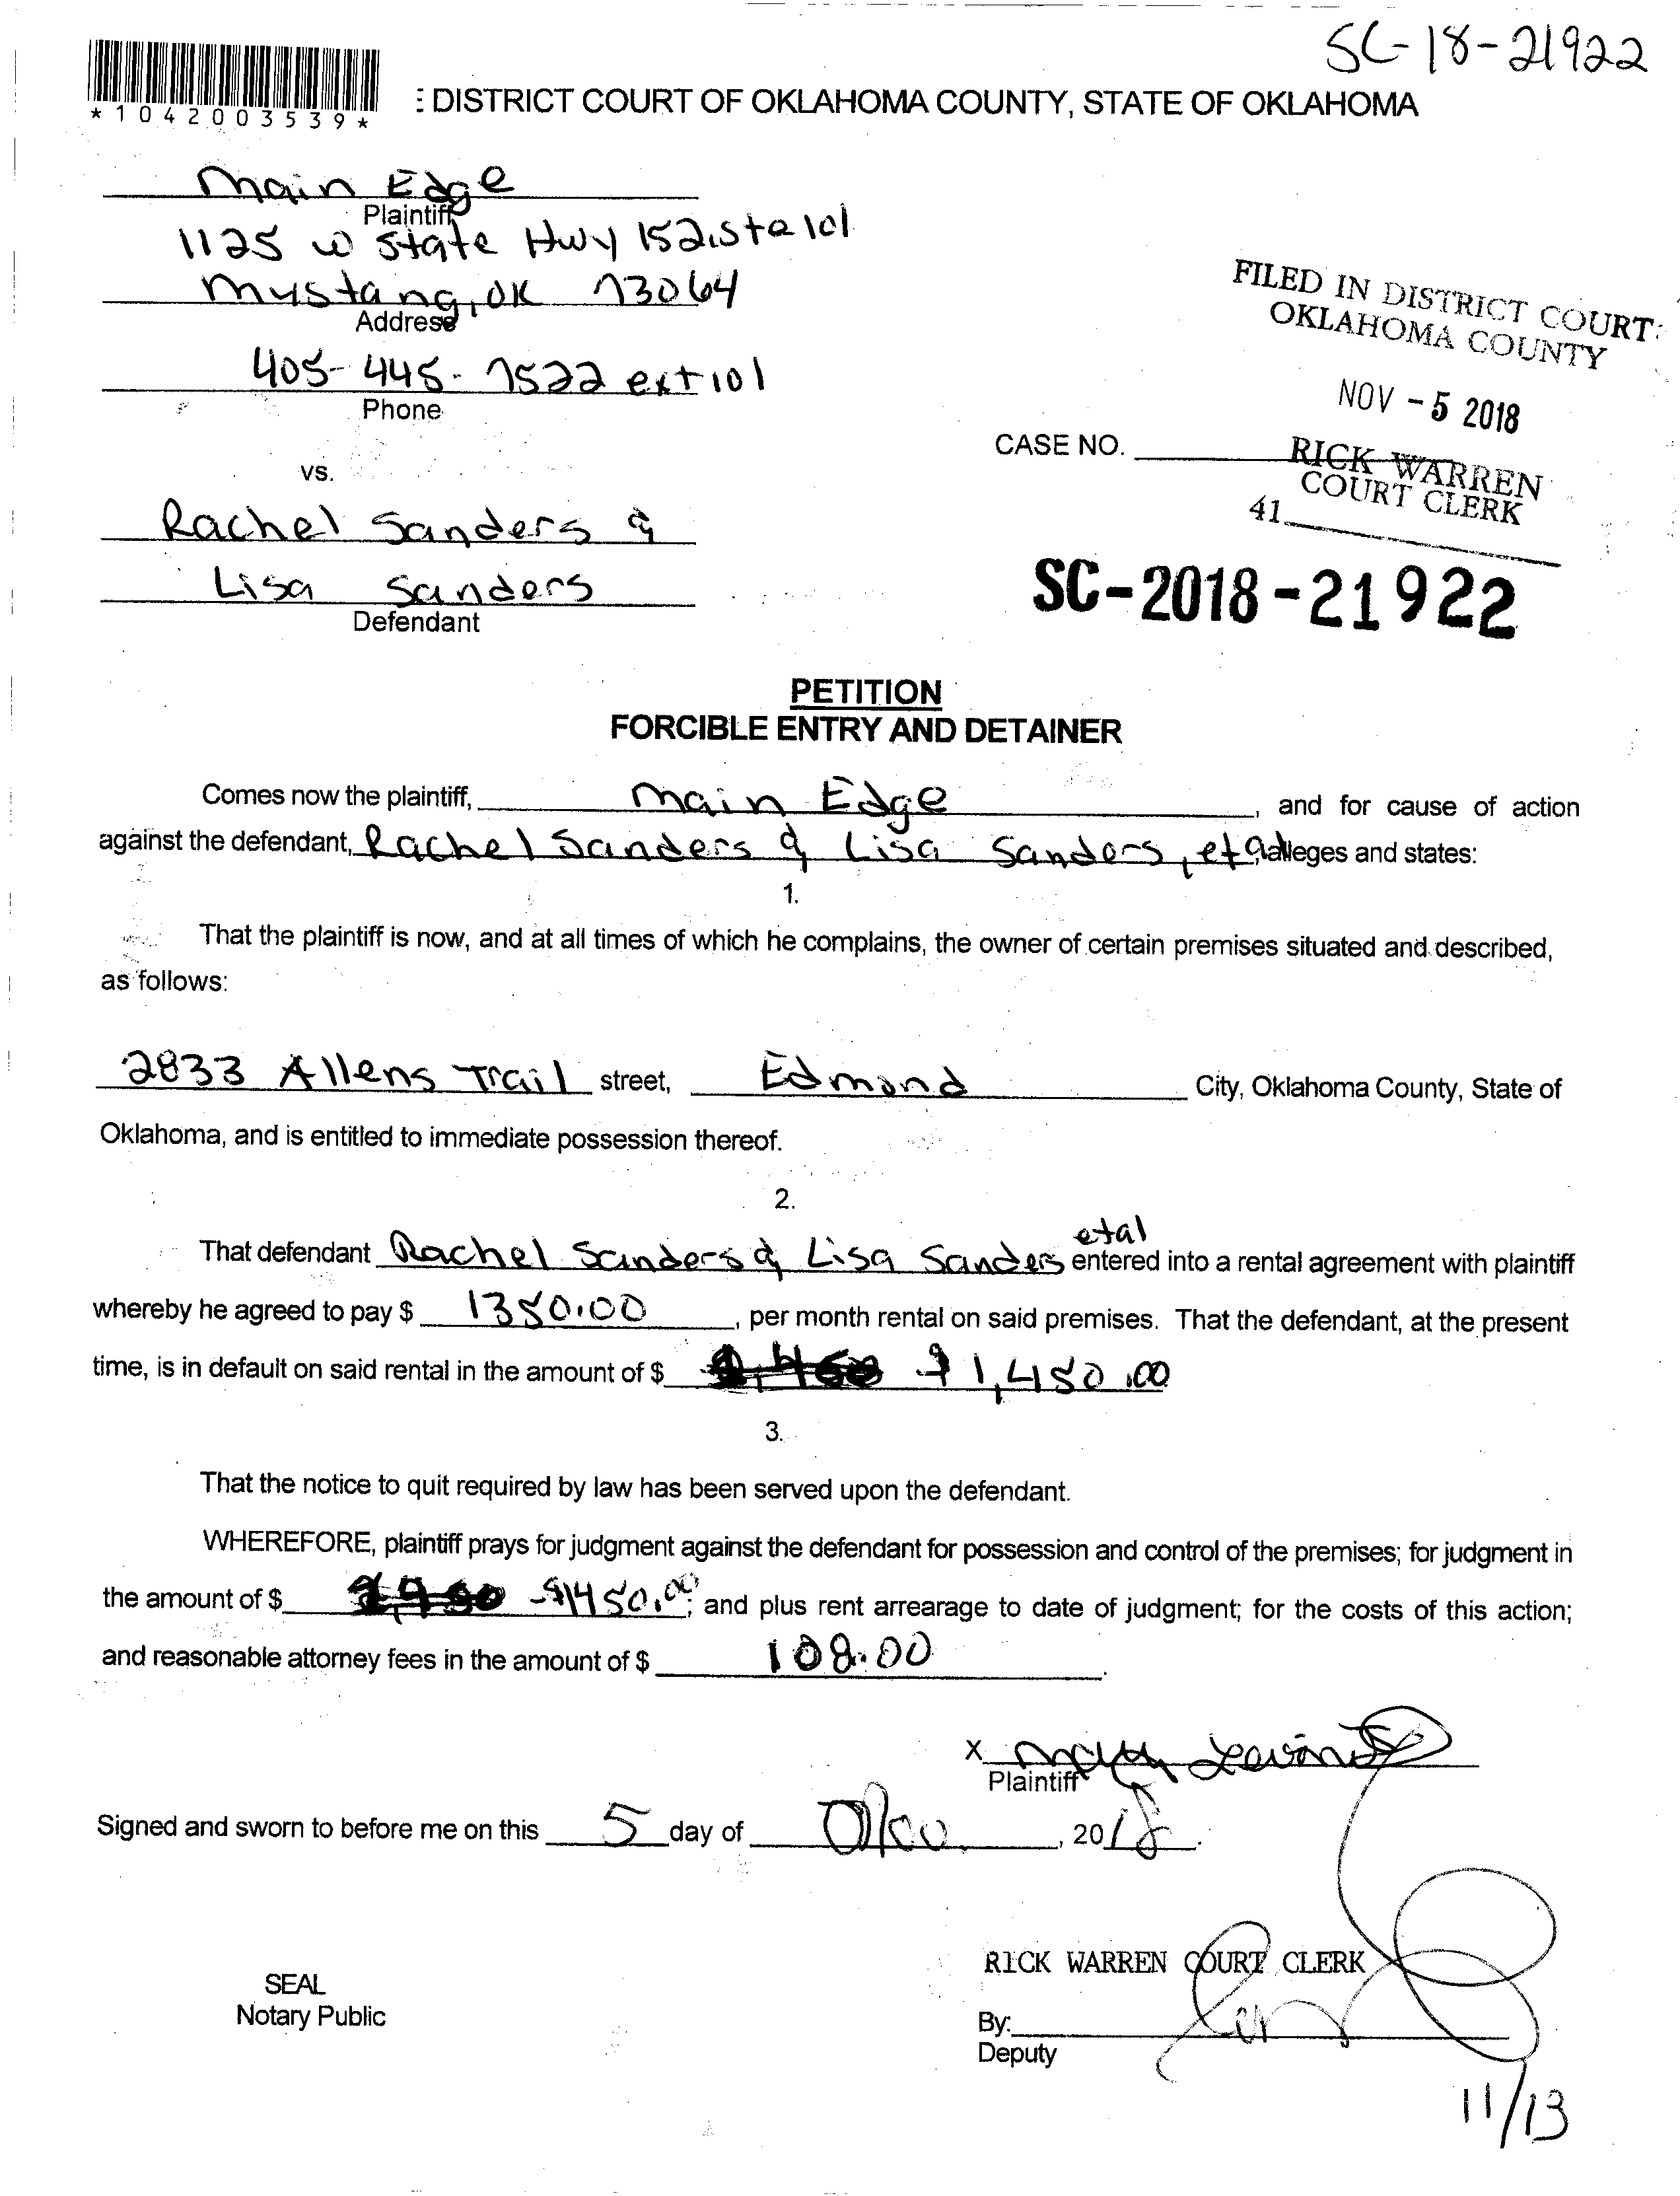 SC-18-21922
*1042003539*
: DISTRICT COURT OF OKLAHOMA COUNTY, STATE OF OKLAHOMA
Main Edge
Plaintiff
1125 W State Hwy 152, Ste 101
Mustang, OK 73064
Address
405-445-7522 ext 101
Phone
FILED IN DISTRICT COURT
OKLAHOMA COUNTY
NOV -5 2018
RICK WARREN
COURT CLERK
41
CASE NO.
vs.
Rachel Sanders &
Lisa Sanders
Defendant
SC-2018-21922
PETITION
FORCIBLE ENTRY AND DETAINER
Comes now the plaintiff, Main Edge, and for cause of action
against the defendant, Rachel Sanders & Lisa Sanders, et al alleges and states:
1.
That the plaintiff is now, and at all times of which he complains, the owner of certain premises situated and described,
as follows:
2833 Allens Trail street, Edmond City, Oklahoma County, State of
Oklahoma, and is entitled to immediate possession thereof.
2.
That defendant Rachel Sanders & Lisa Sanders et al entered into a rental agreement with plaintiff
whereby he agreed to pay $ 1350.00, per month rental on said premises. That the defendant, at the present
time, is in default on said rental in the amount of $ $1,450.00
3.
That the notice to quit required by law has been served upon the defendant.
WHEREFORE, plaintiff prays for judgment against the defendant for possession and control of the premises; for judgment in
the amount of $ $1450.00; and plus rent arrearage to date of judgment; for the costs of this action;
and reasonable attorney fees in the amount of $ 108.00.
X
Plaintiff
Signed and sworn to before me on this 5 day of , 2018.
RICK WARREN COURT CLERK
SEAL
Notary Public
By:
Deputy
11/13